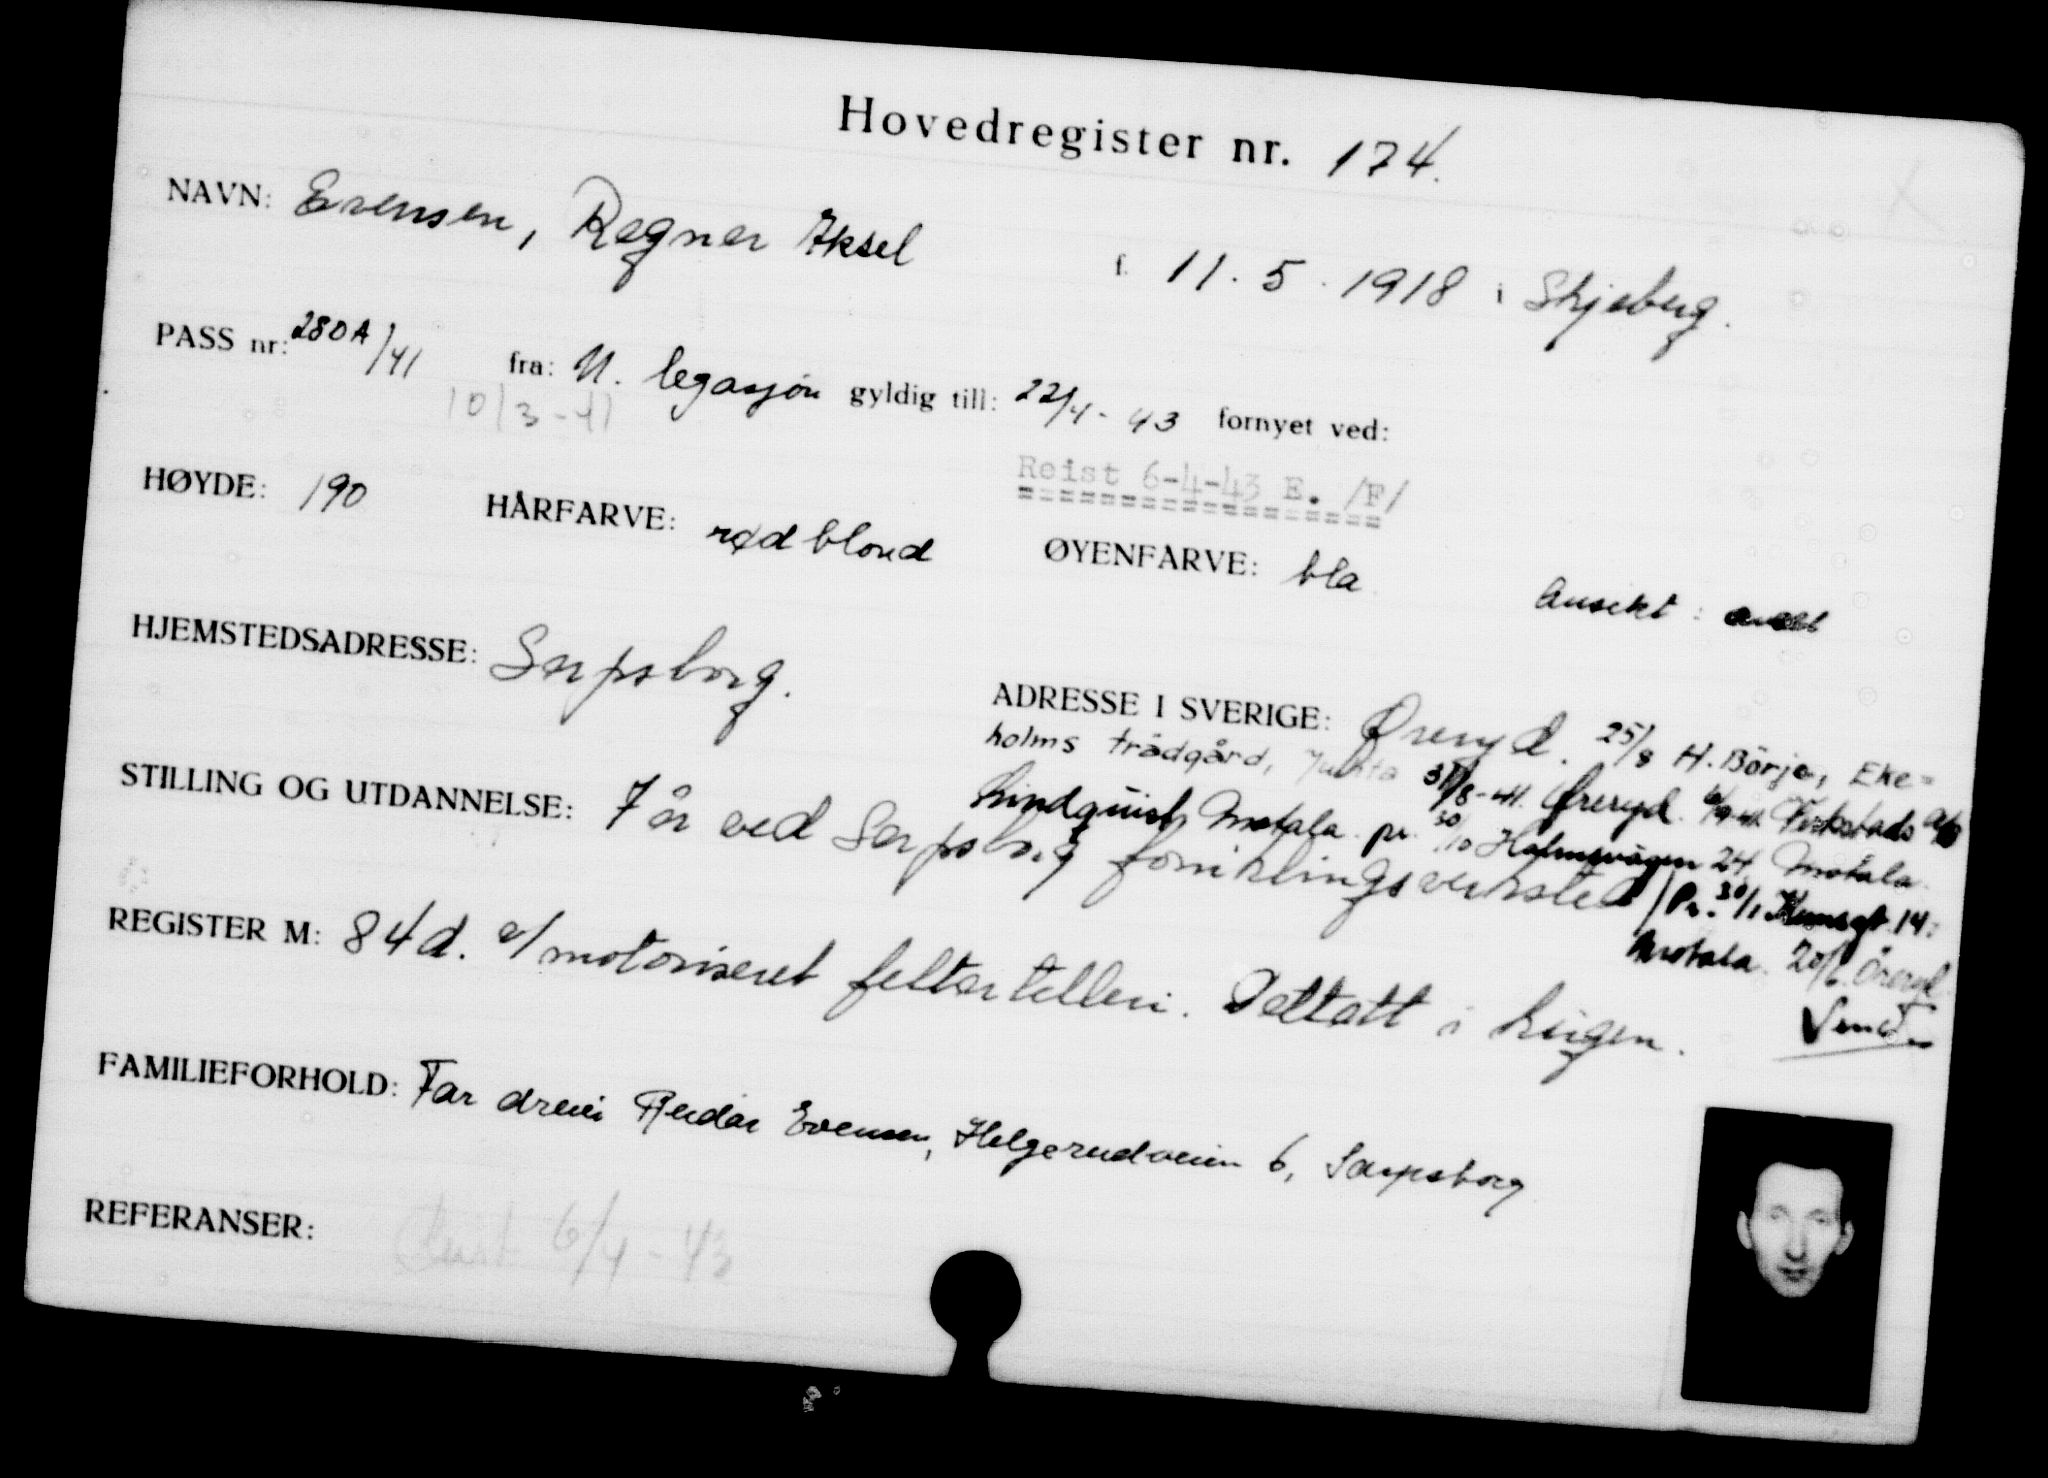 Hovedregister nr. 174.
NAVN: Evensen, Ragnar Aksel f. 11.5.1918 i Skjeberg.
PASS nr: 280A/41 fra: N. legasjon gyldig till: 22/4-43 fornyet ved:
10/3-41
Reist 6-4-43 E. /F/
HØYDE: 190 HÅRFARVE: rødblond ØYENFARVE: blå Ansikt: ovalt
HJEMSTEDSADRESSE: Sarpsborg.
ADRESSE I SVERIGE: Øreryd. 25/8 H. Börje, Eke=
holms trädgård, 31/8-41. Øreryd.
Lindquist Motala. pr. 30/10 Holmsvägen 24, Motala.
/Pr. 30/1 14,
Motala. 20/6. Öreryd
STILLING OG UTDANNELSE: 7 år ved Sarpsborg forniklingsverksted
REGISTER M: 84d. motoriseret feltartilleri. Deltatt i krigen.
FAMILIEFORHOLD: Far dreier Reidar Evensen, Helgerudveien 6, Sarpsborg
REFERANSER:
Reist 6/4-43